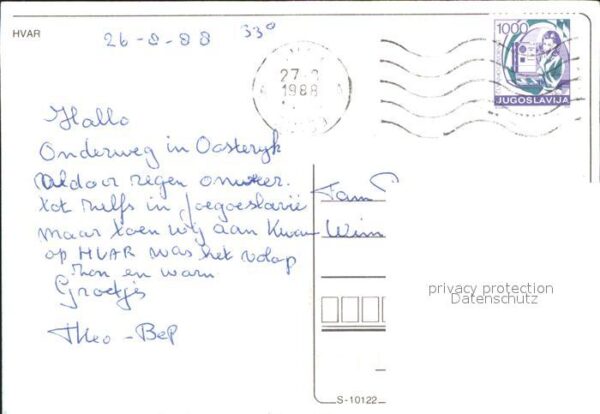 HVAR
26-8-88 33°
1000
JUGOSLAVIJA
27.
1988
Hallo
Onderweg in Oosteryk
aldoor regen onweer.
tot zelfs in Joegoslavië
maar toen wij aan Kwam
op HVAR was het volop
zon en warm
Groetjes
Theo - Bep
Fam
Wim
privacy protection
Datenschutz
S-10122